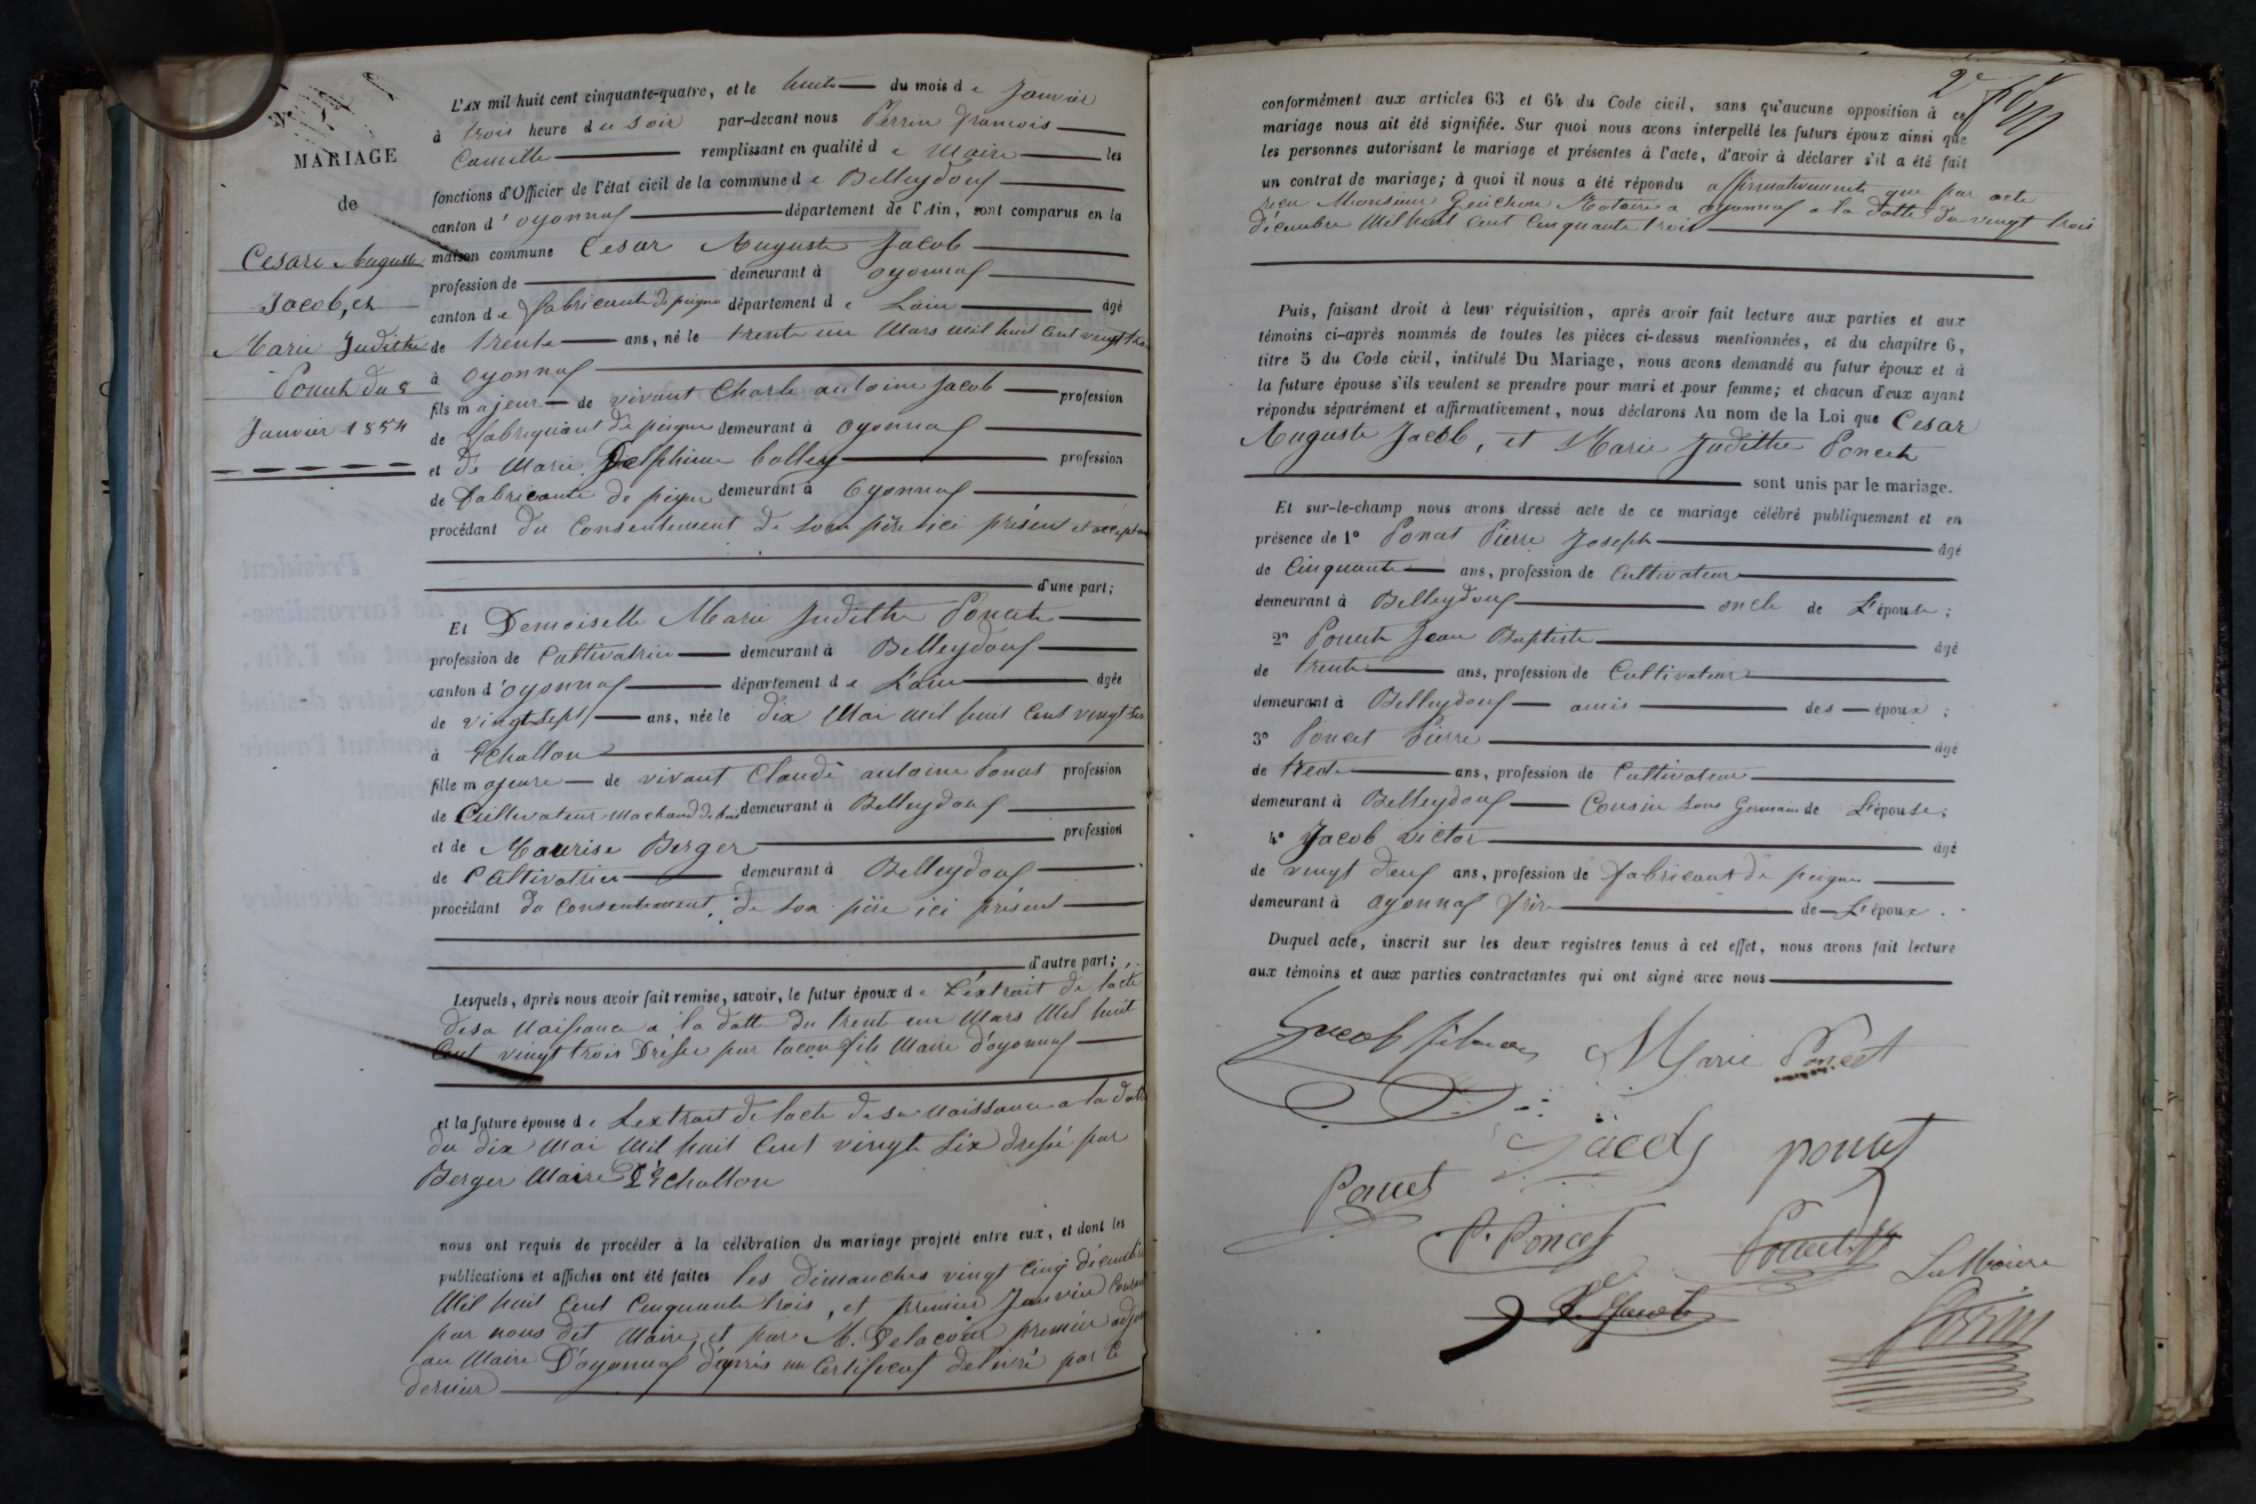 N° 1
MARIAGE
de
Cesare Auguste
Jacob, et
Marie Judithe
Poncet du 8
Janvier 1854
L'AN mil huit cent cinquante-quatre, et le huit du mois de Janvier
à trois heure du soir par-devant nous Perrin françois
Camille remplissant en qualité de Maire les
fonctions d'Officier de l'état civil de la commune de Belleydoux
canton d'oyonnax département de l'Ain, sont comparus en la
maison commune Cesar Auguste Jacob
profession de demeurant à oyonnax
canton de fabricant de peigne département de Lain âgé
de trente ans, né le trente un Mars mil huit Cent vingt trois
à oyonnax
fils majeur de vivant Charle antoine Jacob profession
de fabriquant de peigne demeurant à oyonnax
et de Marie Delphine bolley profession
de fabricante de peigne demeurant à Oyonnax
procédant du Consentement de son père ici présent et acceptant
d'une part;
Et Demoiselle Marie Judithe Poncet
profession de Cultivatrice demeurant à Belleydoux
canton d'oyonnax département de L'ain âgée
de vingt sept ans, née le dix Mai mil huit Cent vingt six
à Echallon
fille majeure de vivant Claude antoine Poncet profession
de Cultivateur Machand de bois demeurant à Belleydoux
et de Maurise Berger profession
de Cultivatrice demeurant à Belleydoux
procédant du Consentement de son père ici présent
d'autre part;
Lesquels, après nous avoir fait remise, savoir, le futur époux de L'extrait de lacte
de sa Naissance a la datte du trent un Mars Mil huit
Cent vingt trois Dréssé par tacon fils Maire d'oyonnax
et la future épouse de Lextrait de lacte de sa naissance a la datte
du dix Mai Mil huit Cent vingt Six dressé par
Berger Maire D'Echallon
nous ont requis de procéder à la célébration du mariage projeté entre eux, et dont les
publications et affiches ont été faites les dimanches vingt Cinq décembre
Mil huit Cent Cinquante trois, et premier Janvier Courant
par nous dit Maire, et par M. Delacour premier adjoint
au Maire D'oyonnax d'après un Certificat delivré par le
dernier
2e
conformément aux articles 63 et 64 du Code civil, sans qu'aucune opposition à ce
mariage nous ait été signifiée. Sur quoi nous avons interpellé les futurs époux ainsi que
les personnes autorisant le mariage et présentes à l'acte, d'avoir à déclarer s'il a été fait
un contrat de mariage; à quoi il nous a été répondu affirmativement que par acte
reçu Monsieur Guichon Notaire a oyonnax a la datte du vingt trois
décembre Mil huit Cent Cinquante trois
Puis, faisant droit à leur réquisition, après avoir fait lecture aux parties et aux
témoins ci-après nommés de toutes les pièces ci-dessus mentionnées, et du chapitre 6,
titre 5 du Code civil, intitulé Du Mariage, nous avons demandé au futur époux et à
la future épouse s'ils veulent se prendre pour mari et pour femme; et chacun d'eux ayant
répondu séparément et affirmativement, nous déclarons Au nom de la Loi que Cesar
Auguste Jacob, et Marie Judithe Poncet
sont unis par le mariage.
Et sur-le-champ nous avons dressé acte de ce mariage célébré publiquement et en
présence de 1° Poncet Pierre Joseph âgé
de Cinquante ans, profession de Cultivateur
demeurant à Belleydoux oncle de L'épouse;
2° Poncet Jean Baptiste âgé
de trente ans, profession de Cultivateur
demeurant à Belleydoux amis des époux;
3° Poncet Pierre âgé
de trente ans, profession de Cultivateur
demeurant à Belleydoux Cousin sous Germain de L'épouse;
4° Jacob victor âgé
de vingt deux ans, profession de fabricant de peigne
demeurant à oyonnax frère de L'époux.
Duquel acte, inscrit sur les deux registres tenus à cet effet, nous avons fait lecture
aux témoins et aux parties contractantes qui ont signé avec nous
Marie Poncet
Jacob poncet
Poncet
P. Poncet Poncet
Le Maire
V. Jacob
Perrin